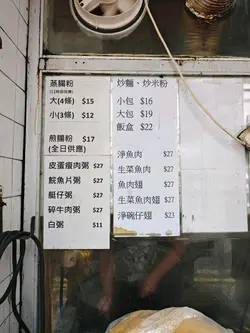 蒸腸粉
大(4條) $15
小(3條) $12
煎腸粉 $17
(全日供應)
皮蛋瘦肉粥 $27
鯇魚片粥 $27
艇仔粥 $27
碎牛肉粥 $27
白粥 $11
炒麵、炒米粉
小包 $16
大包 $19
飯盒 $22
淨魚肉 $27
生菜魚肉 $27
魚肉翅 $27
生菜魚肉翅 $27
淨碗仔翅 $23